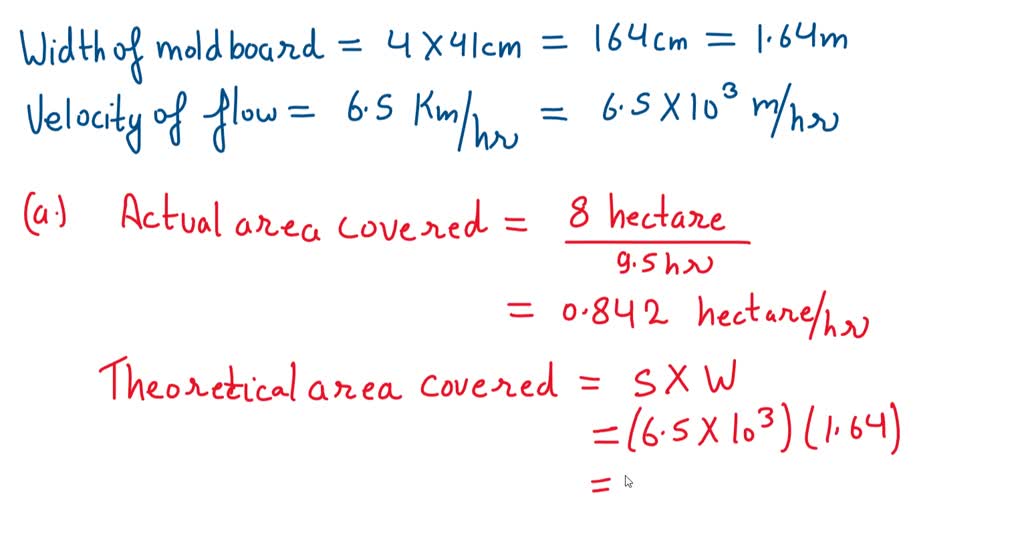 Width of moldboard = 4 X 41cm = 164cm = 1.64m
Velocity of flow = 6.5 Km/hr = 6.5 X 10³ m/hr
(a.) Actual area covered = 8 hectare / 9.5hr
= 0.842 hectare/hr
Theoretical area covered = S X W
= (6.5 X 10³) (1.64)
=